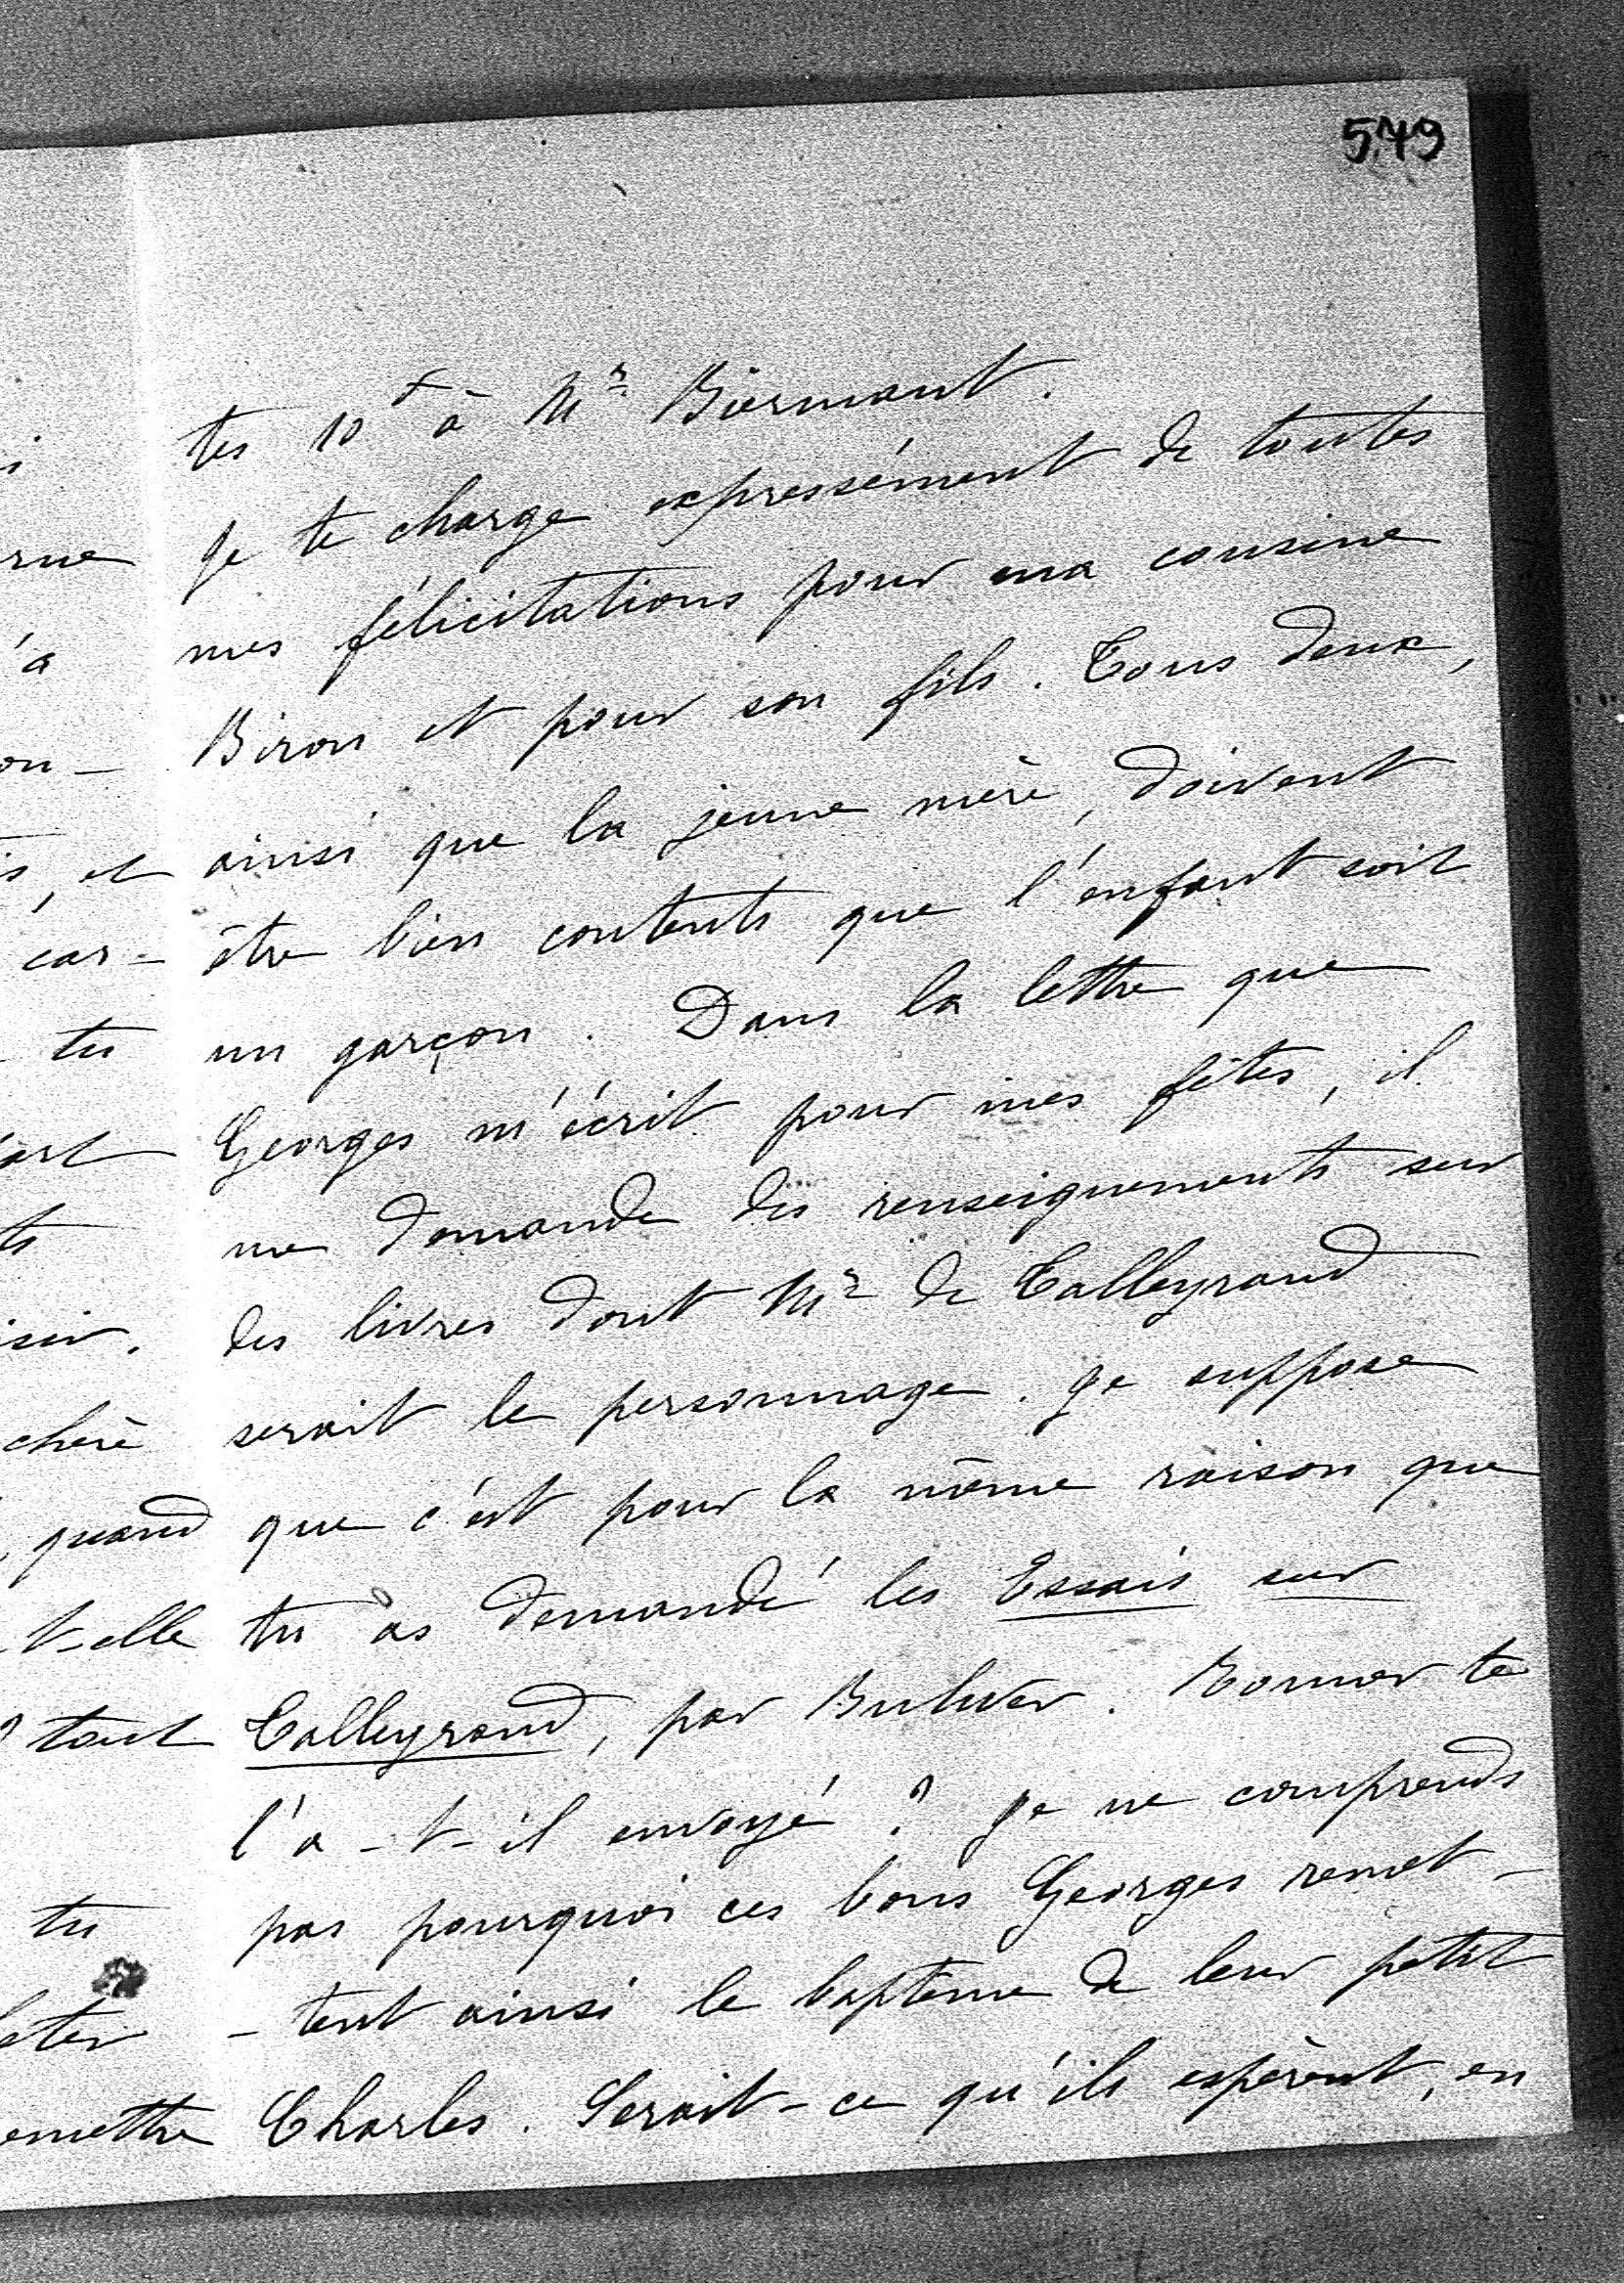 579
tes 10f à Mr Biermont.
Je te charge expressément de toutes
mes félicitations pour ma cousine
Biron et pour son fils. Tous deux,
ainsi que la jeune mère, doivent
être bien contents que l'enfant soit
un garçon. Dans la lettre que
Georges m'écrit pour mes fêtes, il
me demande des renseignements sur
des livres dont Mr de Talleyrand
serait le personnage. Je suppose
que c'est pour la même raison que
tu as demandé les Essais sur
Talleyrand, par Bulwer. Bonner te
l'a-t-il envoyé? Je ne comprends
pas pourquoi ces bons Georges remet-
-tent ainsi le baptême de leur petit
Charles. Serait-ce qu'ils espèrent, en
rne
'a
on-
s, et
car-
tu
art
ts
isir.
chère
, quand
t-elle
tout
tu
eter
emettre